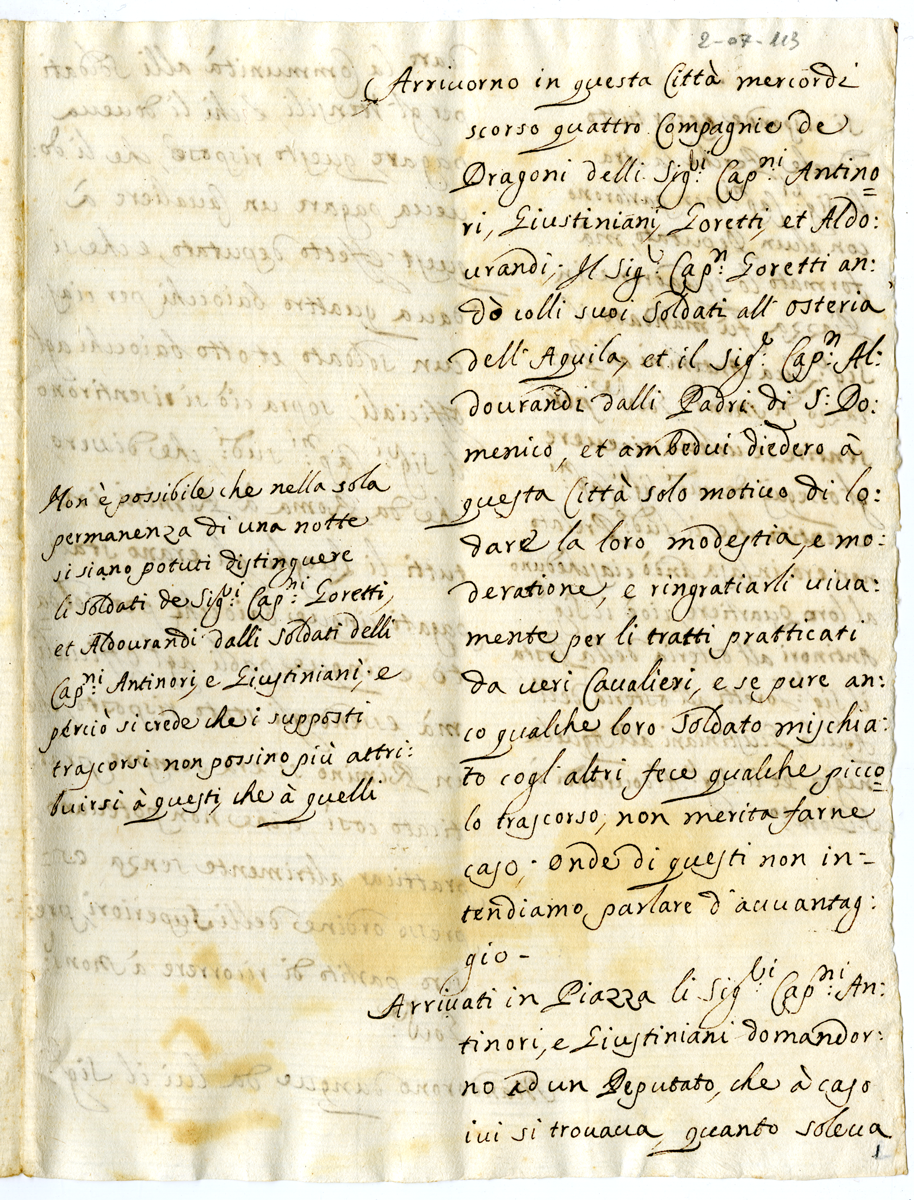 2-07-113
Arrivorno in questa Città mercordi
scorso quattro Compagnie de
Dragoni delli Sig.ri Cap.ni Antino=
ri, Giustiniani, Goretti, et Aldo:
urandi; Il Sig.r Cap.n Goretti an:
dò colli suoi soldati all'osteria
dell'Aquila, et il Sig.r Cap.n Al:
dourandi dalli Padri di S. Do:
menico, et ambedui diedero à
questa Città solo motivo di lo:
dare la loro modestia, e mo:
deratione, e ringratiarli viva:
mente per li tratti pratticati
da veri Cavalieri, e se pure an:
co qualche loro soldato mischia:
to cogl'altri, fece qualche picco=
lo trascorso, non merita farne
caso; Onde di questi non in=
tendiamo parlare d'auuantag:
gio -
Arrivati in Piazza li Sig.ri Cap.ni An:
tinori, e Giustiniani domandor:
no ad un Deputato, che à caso
iui si trouaua, quanto soleua
1
Non è possibile che nella sola
permanenza di una notte
si siano potuti distinguere
li soldati de Sig.ri Cap.ni Goretti,
et Aldourandi dalli soldati delli
Cap.ni Antinori, e Giustiniani; e
perciò si crede che i supposti
trascorsi non possino più attri:
buirsi à questi, che à quelli